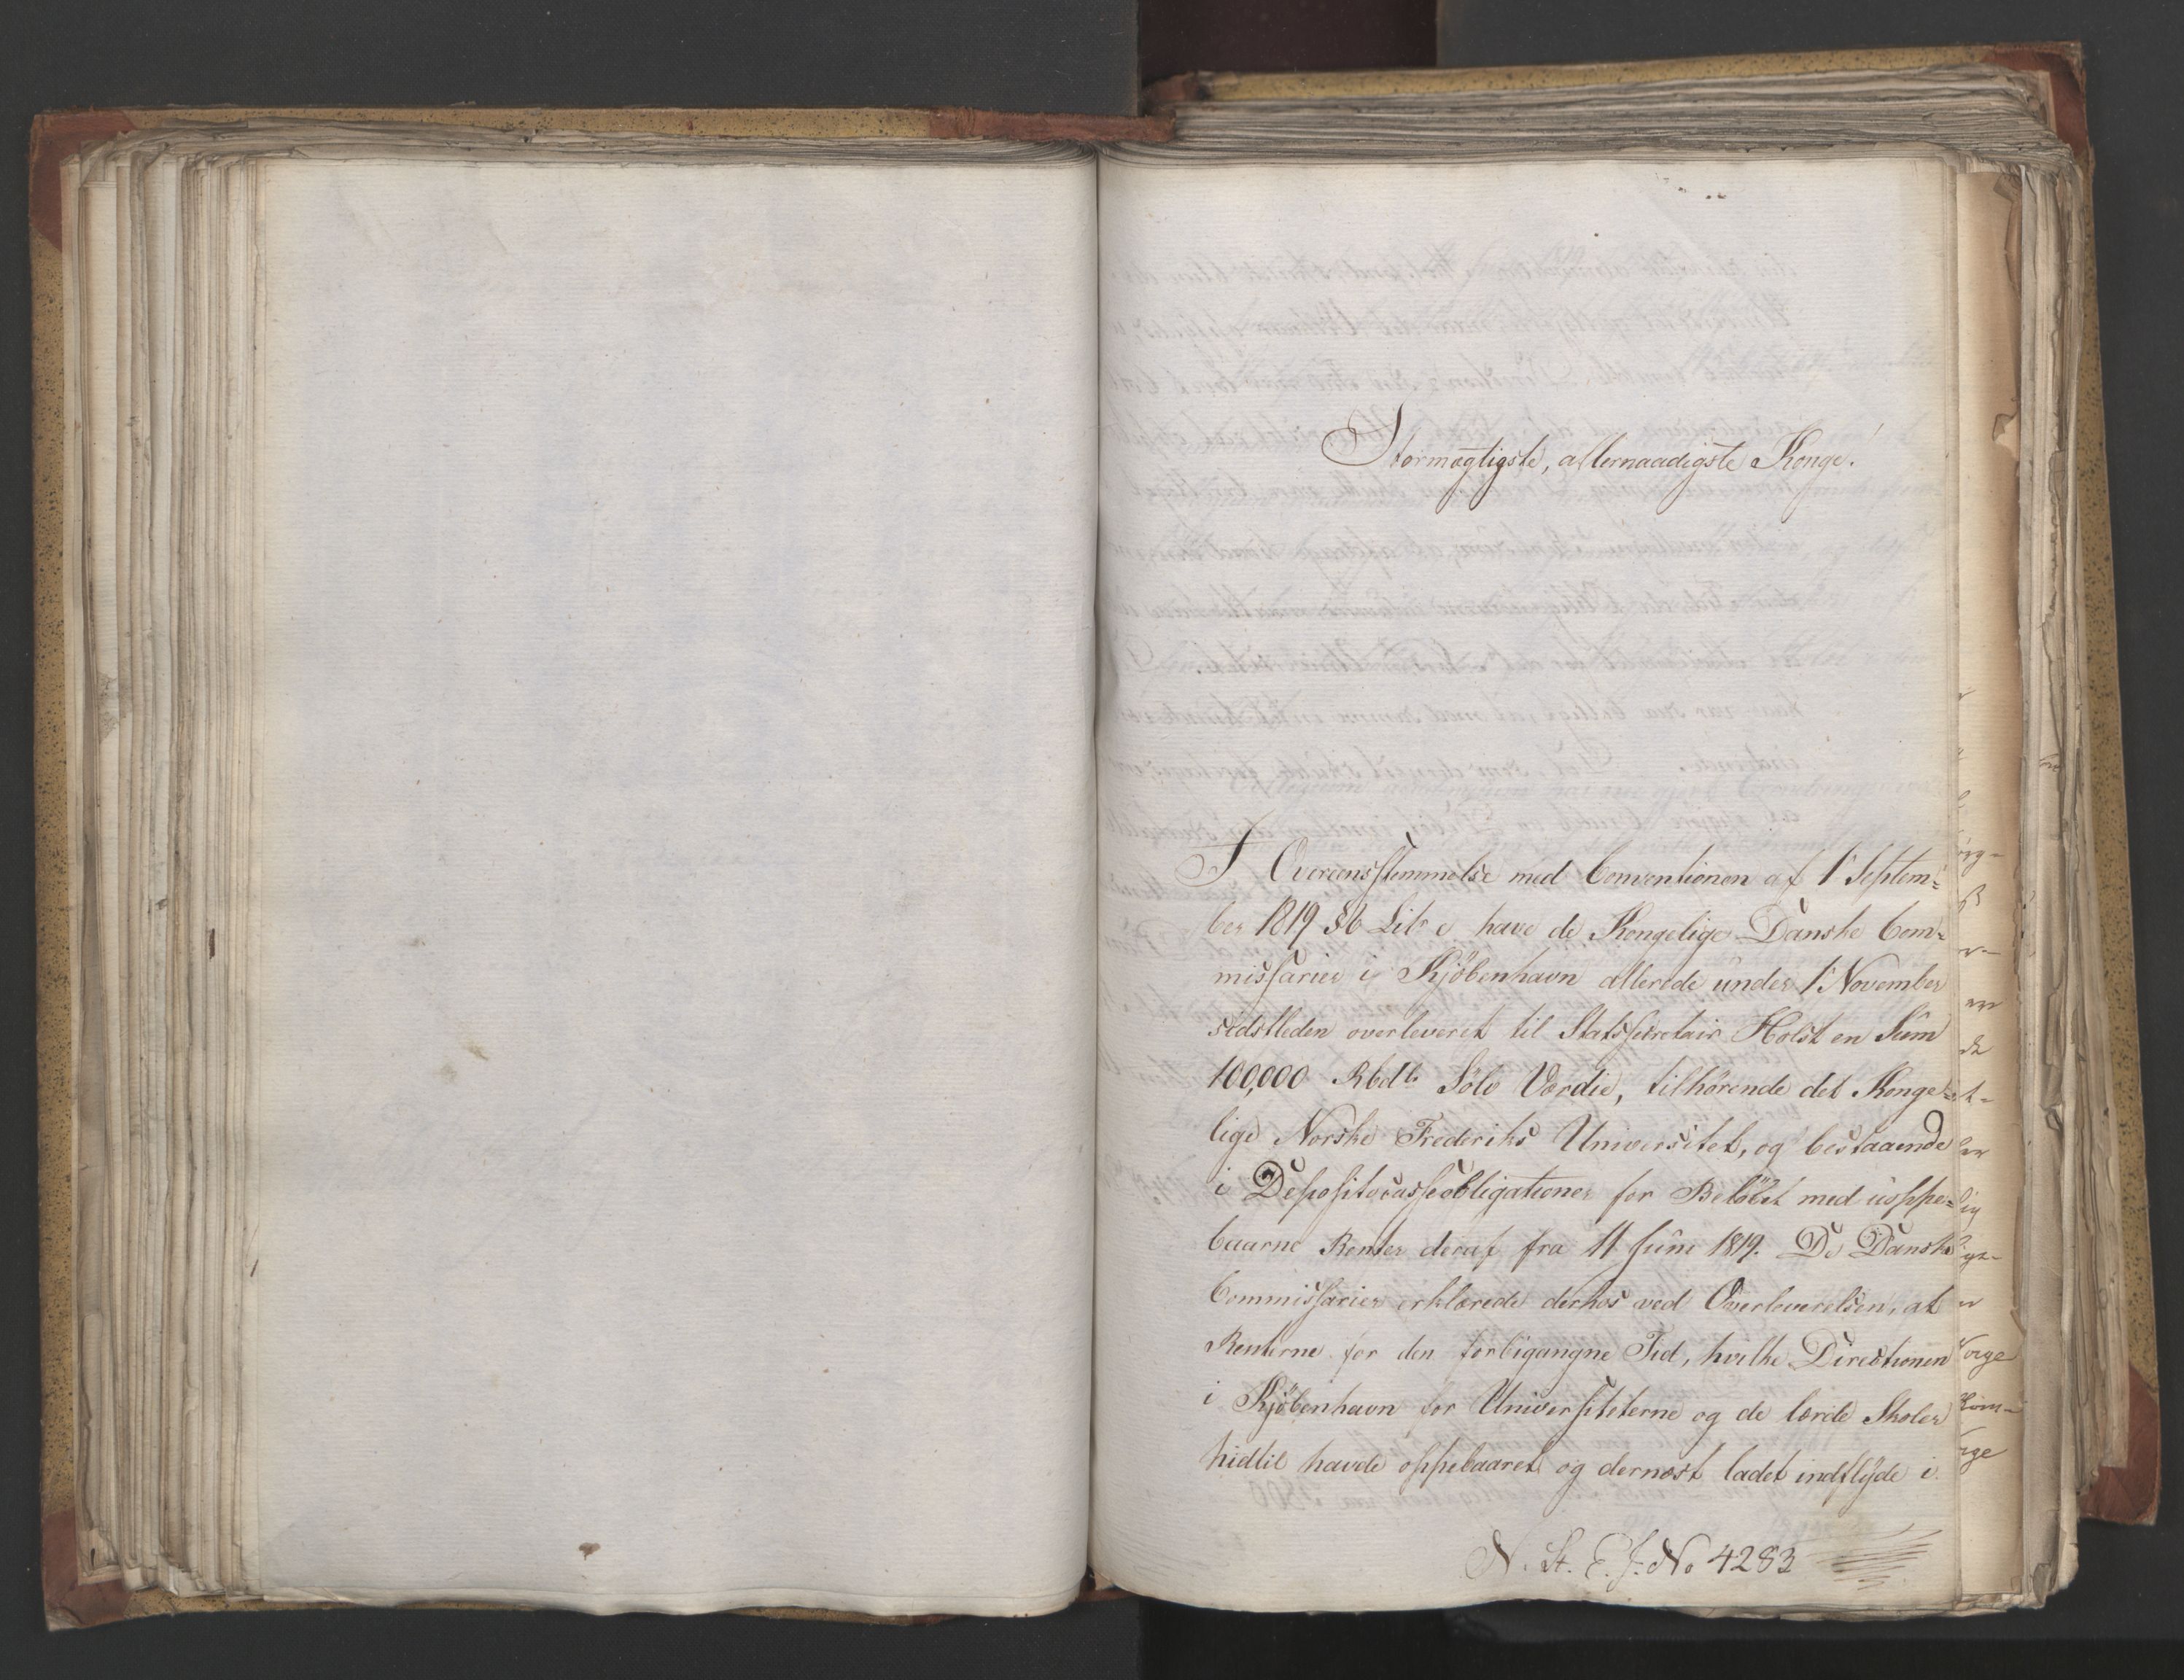 Stormægtigste, allernaadigste Konge!
I Overeensstemmelse med Conventionen af 1' Septem-
ber 1819 §6 Litr c have de Kongelige Danske Com-
missarier i Kjöbenhavn allerede under 1' November
sidstleden overleveret til Statssecretair Holst en Sum
100,000 Rbdlr Sölv Værdie, tilhörende det Konge-
lige Norske Frederiks Universitet, og bestaaende
i Depositocasseobligationer for Belöbet med uoppe-
baarne Renter deraf fra 11 Juni 1819. De Danske
Commissarier erklærede derhos ved Overleverelsen, at
Renterne for den forbigangne Tid, hvilke Directionen
i Kjöbenhavn for Universiteterne og de lærde Skoler
hidtil havde oppebaaret og dernæst ladet indflyde i
N. St. E. J. No 4283